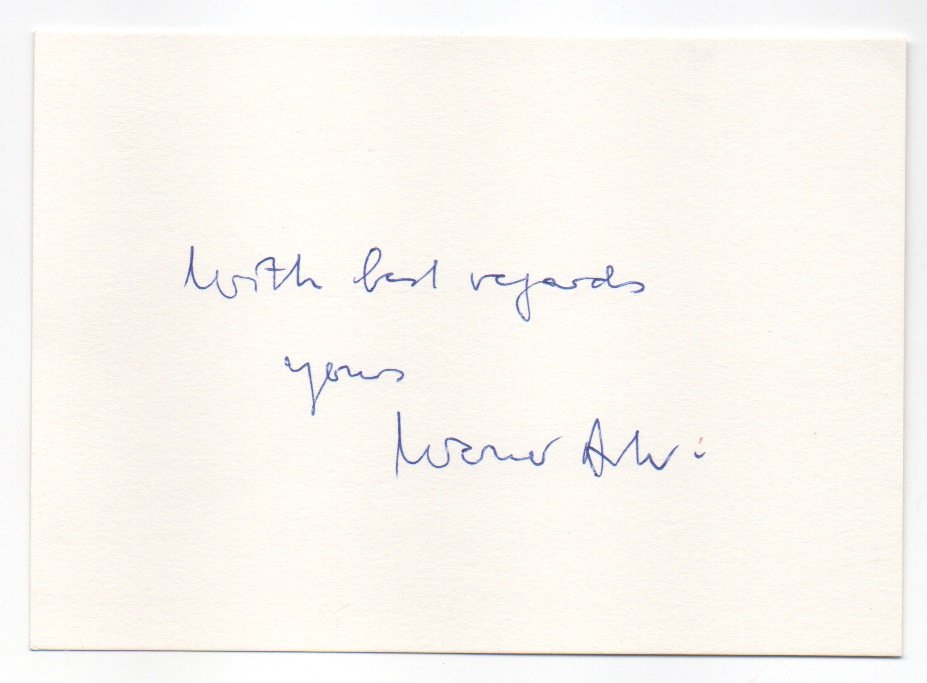 With best regards
yours
Werner Arber